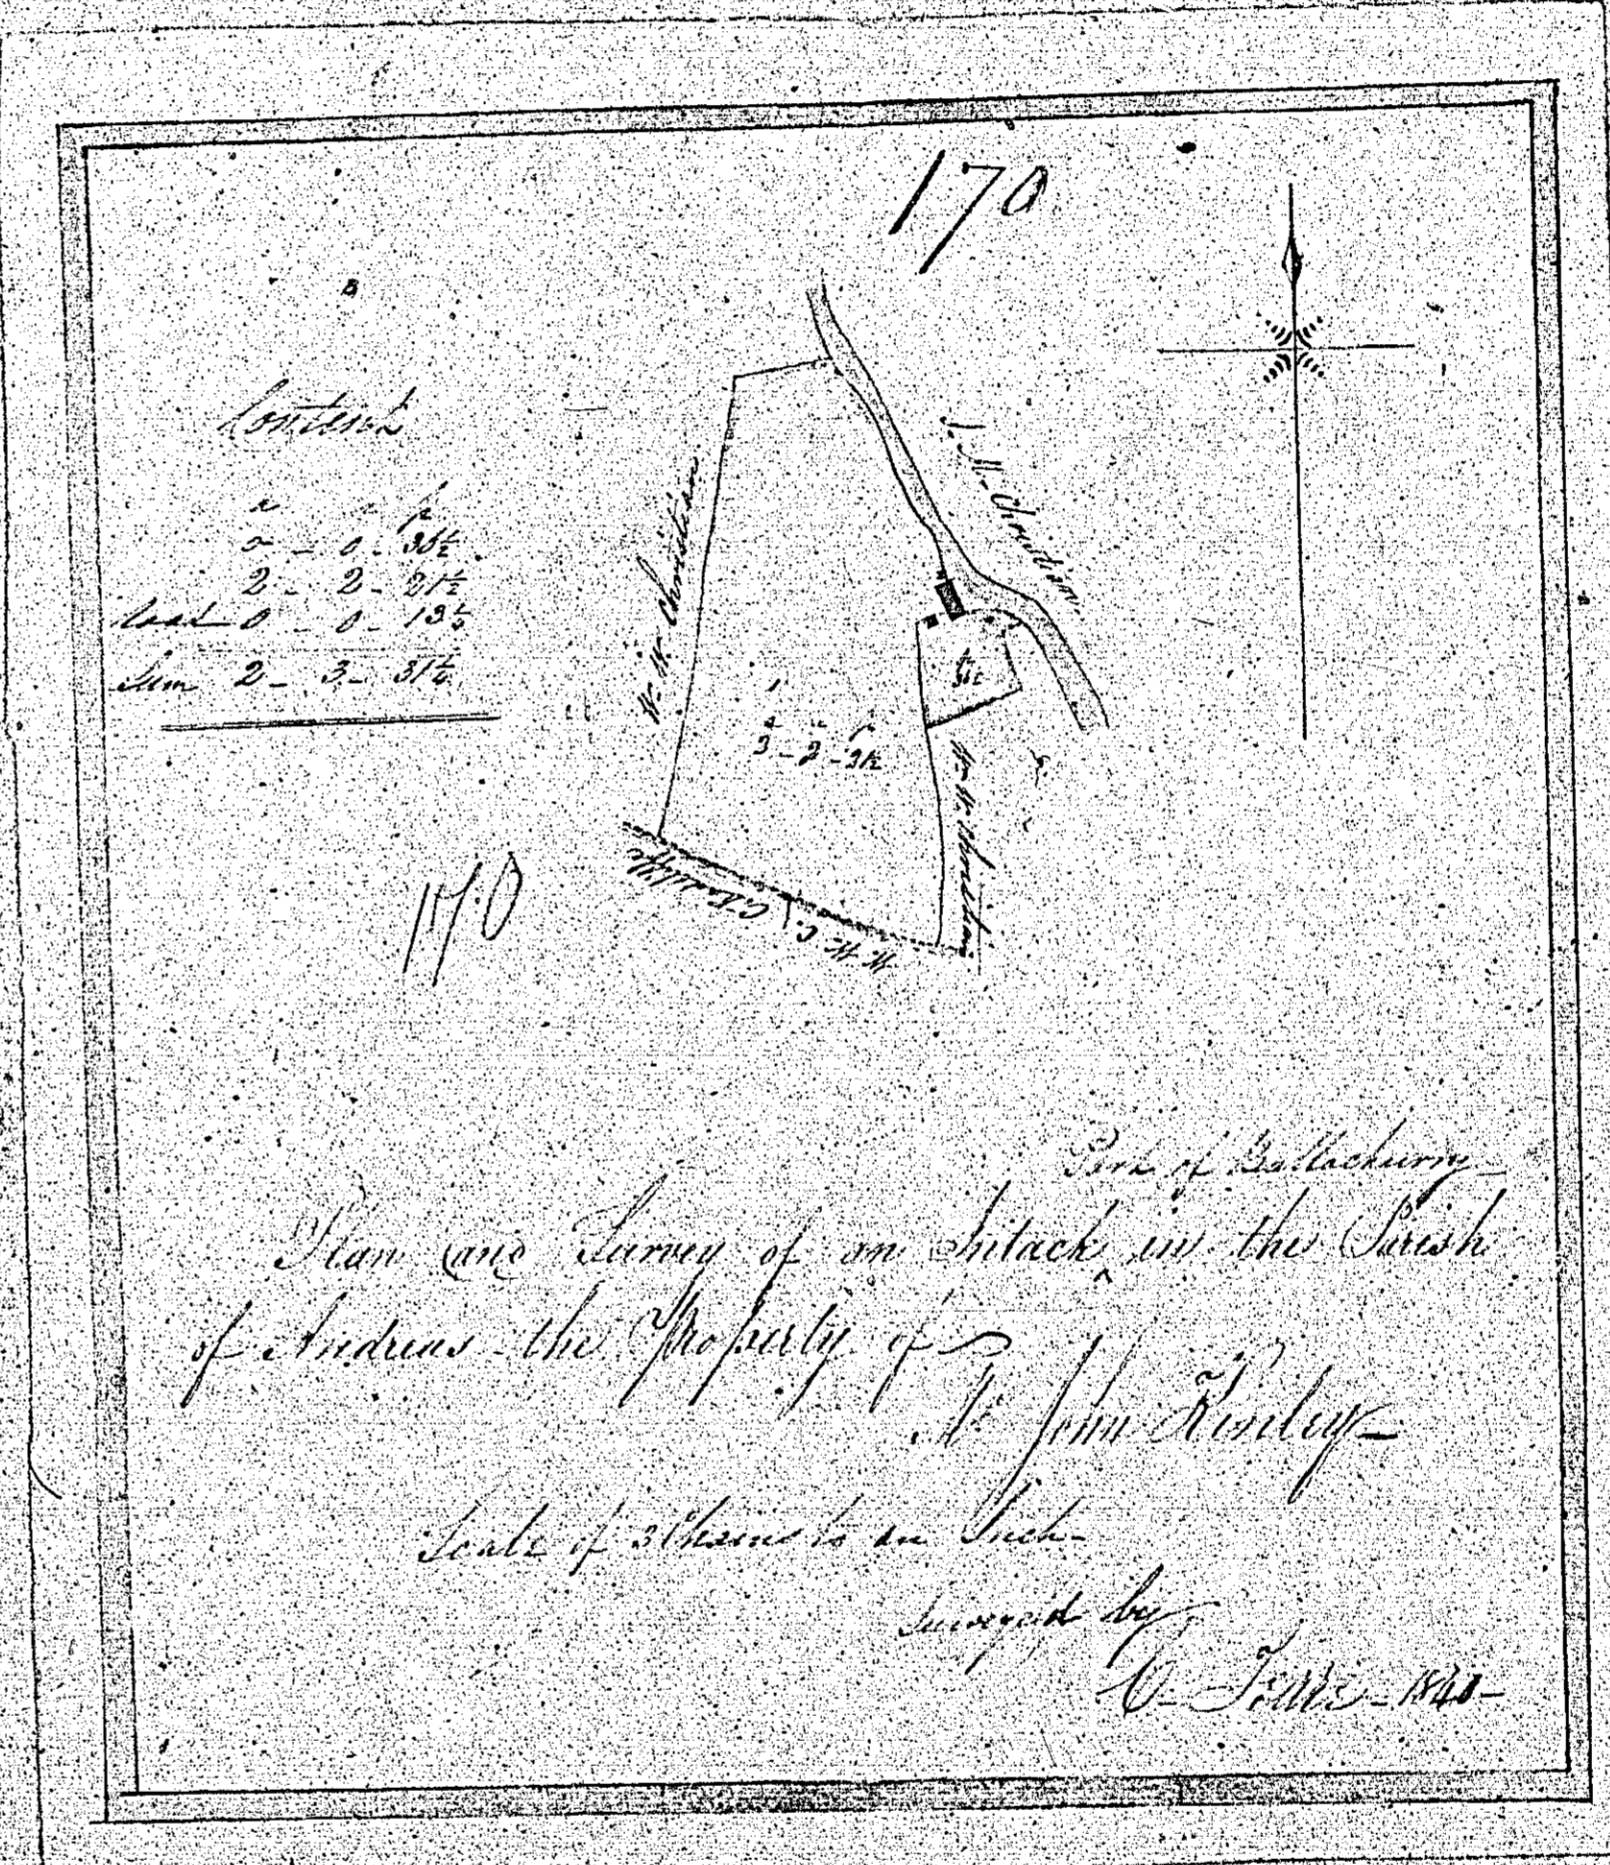 170
Content
a r p
0 - 0 - 36½
2 - 2 - 21½
Road 0 - 0 - 13¼
Sum 2 - 3 - 31¼
W. W. Christian
J. M. Christian
1
W. W. Christian
W. W. C.
170
Part of Ballachurry
Plan and Survey of an Intack ^ in the Parish
of Andreas the Property of
Mr John Kinley
Scale of 3 Chains to an Inch
Surveyed by
1840